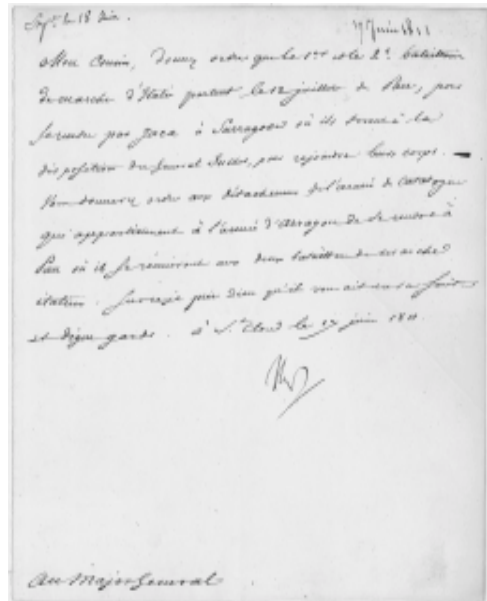 le 18 Juin.
17 Juin 1811
Mon Cousin, donnez ordre que le 1er et le 2e bataillon
de marche d'Italie partent le 12 juillet de Pau, pour
se rendre par Jaca à Sarragosse où ils seront à la
disposition du General Suchet, pour rejoindre leurs corps. —
Vous donnerez ordre aux détachemens de l'armée de Catalogne
qui appartiennent à l'armée d'Arragon de se rendre à
Pau où ils se réuniront aux deux bataillons de marche
italiens. Sur ce je prie Dieu qu'il vous ait en sa sainte
et digne garde. à St Cloud le 17 juin 1811.
Au Major General